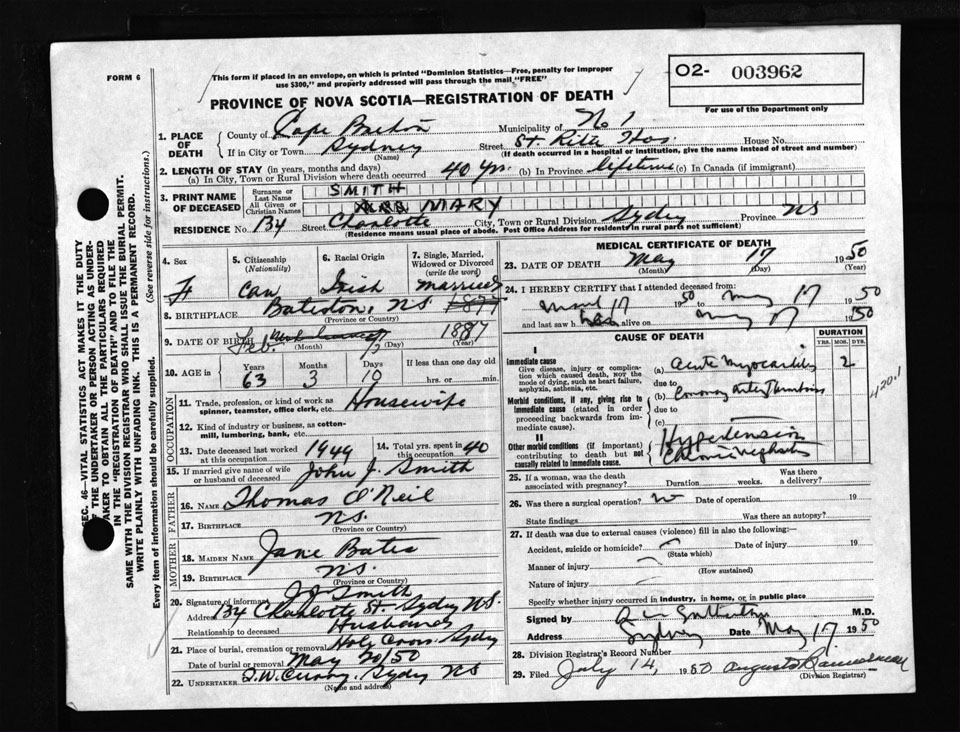 FORM 6
This form if placed in an envelope, on which is printed "Dominion Statistics—Free, penalty for improper
use $300," and properly addressed will pass through the mail "FREE"
O2- 003962
For use of the Department only
PROVINCE OF NOVA SCOTIA—REGISTRATION OF DEATH
1. PLACE OF DEATH
County of Cape Breton Municipality of No 1
If in City or Town Sydney Street St. Rita Hos. House No.
(Name) (If death occurred in a hospital or institution, give the name instead of street and number)
2. LENGTH OF STAY (in years, months and days)
(a) In City, Town or Rural Division where death occurred 40 yrs. (b) In Province lifetime (c) In Canada (if immigrant)
3. PRINT NAME OF DECEASED
Surname or Last Name SMITH
All Given or Christian Names MARY
RESIDENCE No. 134 Street Charlotte City, Town or Rural Division Sydney Province NS
(Residence means usual place of abode. Post Office Address for residents in rural parts not sufficient)
4. Sex F
5. Citizenship (Nationality) Can
6. Racial Origin Irish
7. Single, Married, Widowed or Divorced (write the word) Married
8. BIRTHPLACE Bateston, N.S.
(Province or County)
1877
9. DATE OF BIRTH Feb. 7 1887
(Month) (Day) (Year)
10. AGE in Years 63 Months 3 Days 10
If less than one day old
hrs. or min.
OCCUPATION
11. Trade, profession, or kind of work as spinner, teamster, office clerk, etc. Housewife
12. Kind of industry or business, as cotton-mill, lumbering, bank, etc.
13. Date deceased last worked at this occupation 1949
14. Total yrs. spent in this occupation 40
15. If married give name of wife or husband of deceased John J. Smith
FATHER
16. NAME Thomas O'Neil
17. BIRTHPLACE N.S.
(Province or County)
MOTHER
18. MAIDEN NAME Jane Bates
19. BIRTHPLACE N.S.
(Province or County)
20. Signature of informant J J Smith
Address 134 Charlotte St. Sydney N.S.
Relationship to deceased Husband
21. Place of burial, cremation or removal Holy Cross, Sydney
Date of burial or removal May 20/50
22. UNDERTAKER Sydney NS
(Name and address)
MEDICAL CERTIFICATE OF DEATH
23. DATE OF DEATH May 17 1950
(Month) (Day) (Year)
24. I HEREBY CERTIFY that I attended deceased from:
17 1950 to May 17 1950
and last saw h alive on May 17 1950
CAUSE OF DEATH
DURATION
YRS. MOS. DYS.
I
Immediate cause
Give disease, injury or complication which caused death, NOT the mode of dying, such as heart failure, asphyxia, asthenia, etc.
(a) Acute Myocarditis 2
due to
Morbid conditions, if any, giving rise to immediate cause (stated in order proceeding backwards from immediate cause).
(b) Coronary Artery Thrombosis
due to
(c)
420.1
II
Other morbid conditions (if important) contributing to death but not causally related to immediate cause.
Hypertension
Chronic Nephritis
25. If a woman, was the death associated with pregnancy? Duration weeks. Was there a delivery?
26. Was there a surgical operation? no Date of operation 19
State findings Was there an autopsy?
27. If death was due to external causes (violence) fill in also the following:—
Accident, suicide or homicide? Date of injury 19
(State which)
Manner of injury
(How sustained)
Nature of injury
Specify whether injury occurred in industry, in home, or in public place
Signed by M.D.
Address Sydney Date May 17 1950
28. Division Registrar's Record Number
29. Filed July 14, 1950
(Division Registrar)
SEC. 46—VITAL STATISTICS ACT MAKES IT THE DUTY
OF THE UNDERTAKER OR PERSON ACTING AS UNDER-
TAKER TO OBTAIN ALL THE PARTICULARS REQUIRED
IN THE "REGISTRATION OF DEATH" AND TO FILE THE
SAME WITH THE DIVISION REGISTRAR WHO SHALL ISSUE THE BURIAL PERMIT.
WRITE PLAINLY WITH UNFADING INK. THIS IS A PERMANENT RECORD.
Every item of information should be carefully supplied. (See reverse side for instructions.)